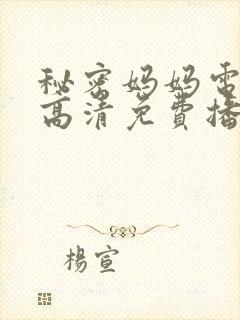 秘密妈妈电
高清免费播
楊宣